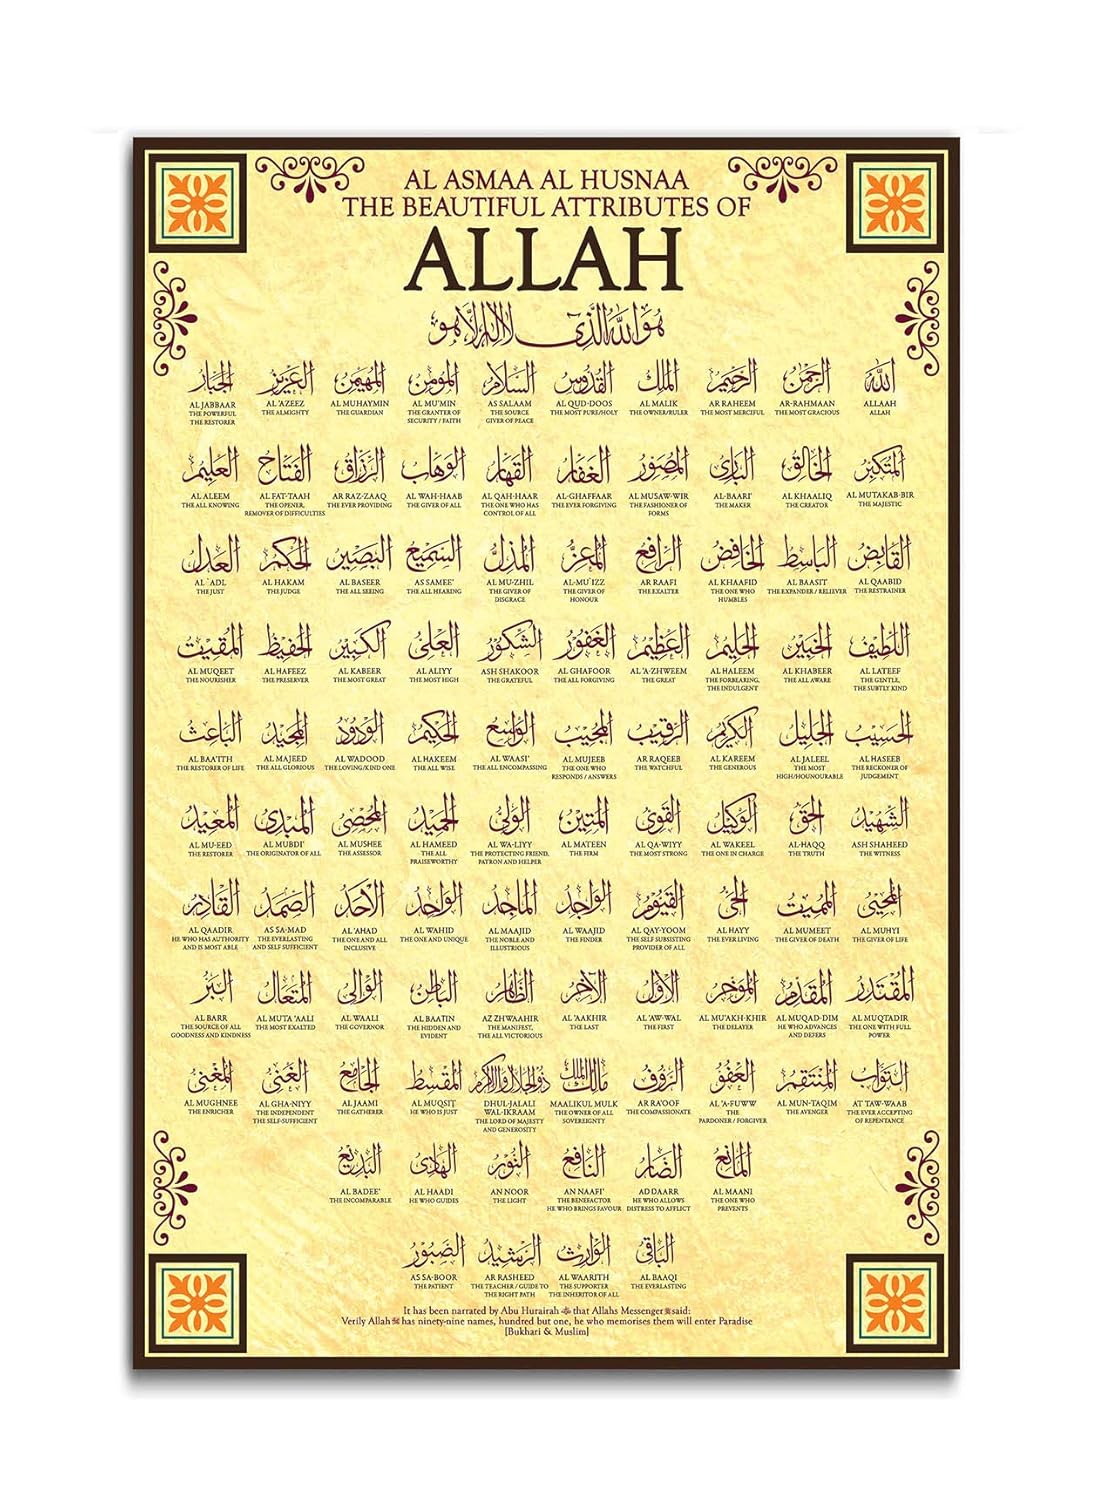 AL ASMAA AL HUSNAA
THE BEAUTIFUL ATTRIBUTES OF
ALLAH
هُوَ اللهُ الَّذِي لَا إِلَهَ إِلَّا هُوَ
الله
ALLAAH
ALLAH
الرحمن
AR-RAHMAAN
THE MOST GRACIOUS
الرحيم
AR RAHEEM
THE MOST MERCIFUL
الملك
AL MALIK
THE OWNER/RULER
القدوس
AL QUD-DOOS
THE MOST PURE/HOLY
السلام
AS SALAAM
THE SOURCE
GIVER OF PEACE
المؤمن
AL MU'MIN
THE GRANTER OF
SECURITY / FAITH
المهيمن
AL MUHAYMIN
THE GUARDIAN
العزيز
AL 'AZEEZ
THE ALMIGHTY
الجبار
AL JABBAAR
THE POWERFUL
THE RESTORER
المتكبر
AL MUTAKAB-BIR
THE MAJESTIC
الخالق
AL KHAALIQ
THE CREATOR
البارئ
AL-BAARI'
THE MAKER
المصور
AL MUSAW-WIR
THE FASHIONER OF
FORMS
الغفار
AL-GHAFFAAR
THE EVER FORGIVING
القهار
AL QAH-HAAR
THE ONE WHO HAS
CONTROL OF ALL
الوهاب
AL WAH-HAAB
THE GIVER OF ALL
الرزاق
AR RAZ-ZAAQ
THE EVER PROVIDING
الفتاح
AL FAT-TAAH
THE OPENER,
REMOVER OF DIFFICULTIES
العليم
AL ALEEM
THE ALL KNOWING
القابض
AL QAABID
THE RESTRAINER
الباسط
AL BAASIT
THE EXPANDER / RELIEVER
الخافض
AL KHAAFID
THE ONE WHO
HUMBLES
الرافع
AR RAAFI
THE EXALTER
المعز
AL-MU`IZZ
THE GIVER OF
HONOUR
المذل
AL MU-ZHIL
THE GIVER OF
DISGRACE
السميع
AS SAMEE'
THE ALL HEARING
البصير
AL BASEER
THE ALL SEEING
الحكم
AL HAKAM
THE JUDGE
العدل
AL `ADL
THE JUST
اللطيف
AL LATEEF
THE GENTLE,
THE SUBTLY KIND
الخبير
AL KHABEER
THE ALL AWARE
الحليم
AL HALEEM
THE FORBEARING,
THE INDULGENT
العظيم
AL 'A-ZHWEEM
THE GREAT
الغفور
AL GHAFOOR
THE ALL FORGIVING
الشكور
ASH SHAKOOR
THE GRATEFUL
العلي
AL ALIYY
THE MOST HIGH
الكبير
AL KABEER
THE MOST GREAT
الحفيظ
AL HAFEEZ
THE PRESERVER
المقيت
AL MUQEET
THE NOURISHER
الحسيب
AL HASEEB
THE RECKONER OF
JUDGEMENT
الجليل
AL JALEEL
THE MOST
HIGH/HOUNOURABLE
الكريم
AL KAREEM
THE GENEROUS
الرقيب
AR RAQEEB
THE WATCHFUL
المجيب
AL MUJEEB
THE ONE WHO
RESPONDS / ANSWERS
الواسع
AL WAASI'
THE ALL ENCOMPASSING
الحكيم
AL HAKEEM
THE ALL WISE
الودود
AL WADOOD
THE LOVING/KIND ONE
المجيد
AL MAJEED
THE ALL GLORIOUS
الباعث
AL BAA'ITH
THE RESTORER OF LIFE
الشهيد
ASH SHAHEED
THE WITNESS
الحق
AL-HAQQ
THE TRUTH
الوكيل
AL WAKEEL
THE ONE IN CHARGE
القوي
AL QA-WIYY
THE MOST STRONG
المتين
AL MATEEN
THE FIRM
الولي
AL WA-LIYY
THE PROTECTING FRIEND,
PATRON AND HELPER
الحميد
AL HAMEED
THE ALL
PRAISEWORTHY
المحصي
AL MUSHEE
THE ASSESSOR
المبدئ
AL MUBDI'
THE ORIGINATOR OF ALL
المعيد
AL MU-EED
THE RESTORER
المحيي
AL MUHYI
THE GIVER OF LIFE
المميت
AL MUMEET
THE GIVER OF DEATH
الحي
AL HAYY
THE EVER LIVING
القيوم
AL QAY-YOOM
THE SELF SUBSISTING
PROVIDER OF ALL
الواجد
AL WAAJID
THE FINDER
الماجد
AL MAAJID
THE NOBLE AND
ILLUSTRIOUS
الواحد
AL WAHID
THE ONE AND UNIQUE
الأحد
AL 'AHAD
THE ONE AND ALL
INCLUSIVE
الصمد
AS SA-MAD
THE EVERLASTING
AND SELF SUFFICIENT
القادر
AL QAADIR
HE WHO HAS AUTHORITY
AND IS MOST ABLE
المقتدر
AL MUQTADIR
THE ONE WITH FULL
POWER
المقدم
AL MUQAD-DIM
HE WHO ADVANCES
AND DEFERS
المؤخر
AL MU'AKH-KHIR
THE DELAYER
الأول
AL 'AW-WAL
THE FIRST
الآخر
AL 'AAKHIR
THE LAST
الظاهر
AZ ZHWAAHIR
THE MANIFEST,
THE ALL VICTORIOUS
الباطن
AL BAATIN
THE HIDDEN AND
EVIDENT
الوالي
AL WAALI
THE GOVERNOR
المتعال
AL MUTA 'AALI
THE MOST EXALTED
البر
AL BARR
THE SOURCE OF ALL
GOODNESS AND KINDNESS
التواب
AT TAW-WAAB
THE EVER ACCEPTING
OF REPENTANCE
المنتقم
AL MUN-TAQIM
THE AVENGER
العفو
AL 'A-FUWW
THE
PARDONER / FORGIVER
الرؤوف
AR RA'OOF
THE COMPASSIONATE
مالك الملك
MAALIKUL MULK
THE OWNER OF ALL
SOVEREIGNTY
ذو الجلال والإكرام
DHUL-JALALI
WAL-IKRAAM
THE LORD OF MAJESTY
AND GENEROSITY
المقسط
AL MUQSIT
HE WHO IS JUST
الجامع
AL JAAMI
THE GATHERER
الغني
AL GHA-NIYY
THE INDEPENDENT
THE SELF-SUFFICIENT
المغني
AL MUGHNEE
THE ENRICHER
المانع
AL MAANI
THE ONE WHO
PREVENTS
الضار
AD DAARR
HE WHO ALLOWS
DISTRESS TO AFFLICT
النافع
AN NAAFI'
THE BENEFACTOR
HE WHO BRINGS FAVOUR
النور
AN NOOR
THE LIGHT
الهادي
AL HAADI
HE WHO GUIDES
البديع
AL BADEE'
THE INCOMPARABLE
الباقي
AL BAAQI
THE EVERLASTING
الوارث
AL WAARITH
THE SUPPORTER
THE INHERITOR OF ALL
الرشيد
AR RASHEED
THE TEACHER / GUIDE TO
THE RIGHT PATH
الصبور
AS SA-BOOR
THE PATIENT
It has been narrated by Abu Hurairah that Allahs Messenger ﷺ said:
Verily Allah has ninety-nine names, hundred but one, he who memorises them will enter Paradise
[Bukhari & Muslim]